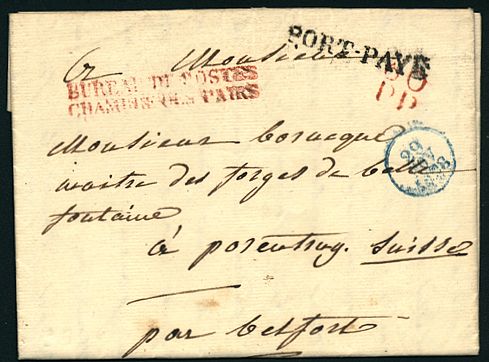 A Monsieur
PORT-PAYÉ
BUREAU DE POSTES
CHAMBRE DES PAIRS
60
P.P.
29
1828
Monsieur
maitre des forges de belle
fontaine
à porentruy. Suisse
par belfort